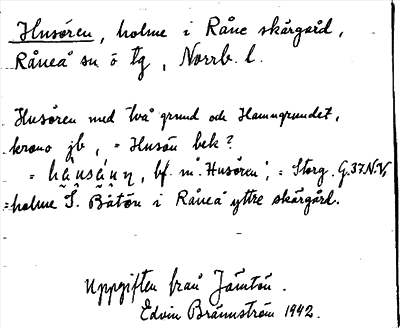 Husören, holme i Råne skärgård,
Råneå sn ö tg, Norrb. l.
Husören med två grund och Hamngrundet,
krono jb, = Husön bek?
= hạ̊usạ́ṇŋ, bf. m. Husören; = Storg. G.37.N.V,
= holme S. Båtön i Råneå yttre skärgård.
Uppgiften från Jämtön.
Edvin Brännström 1942.